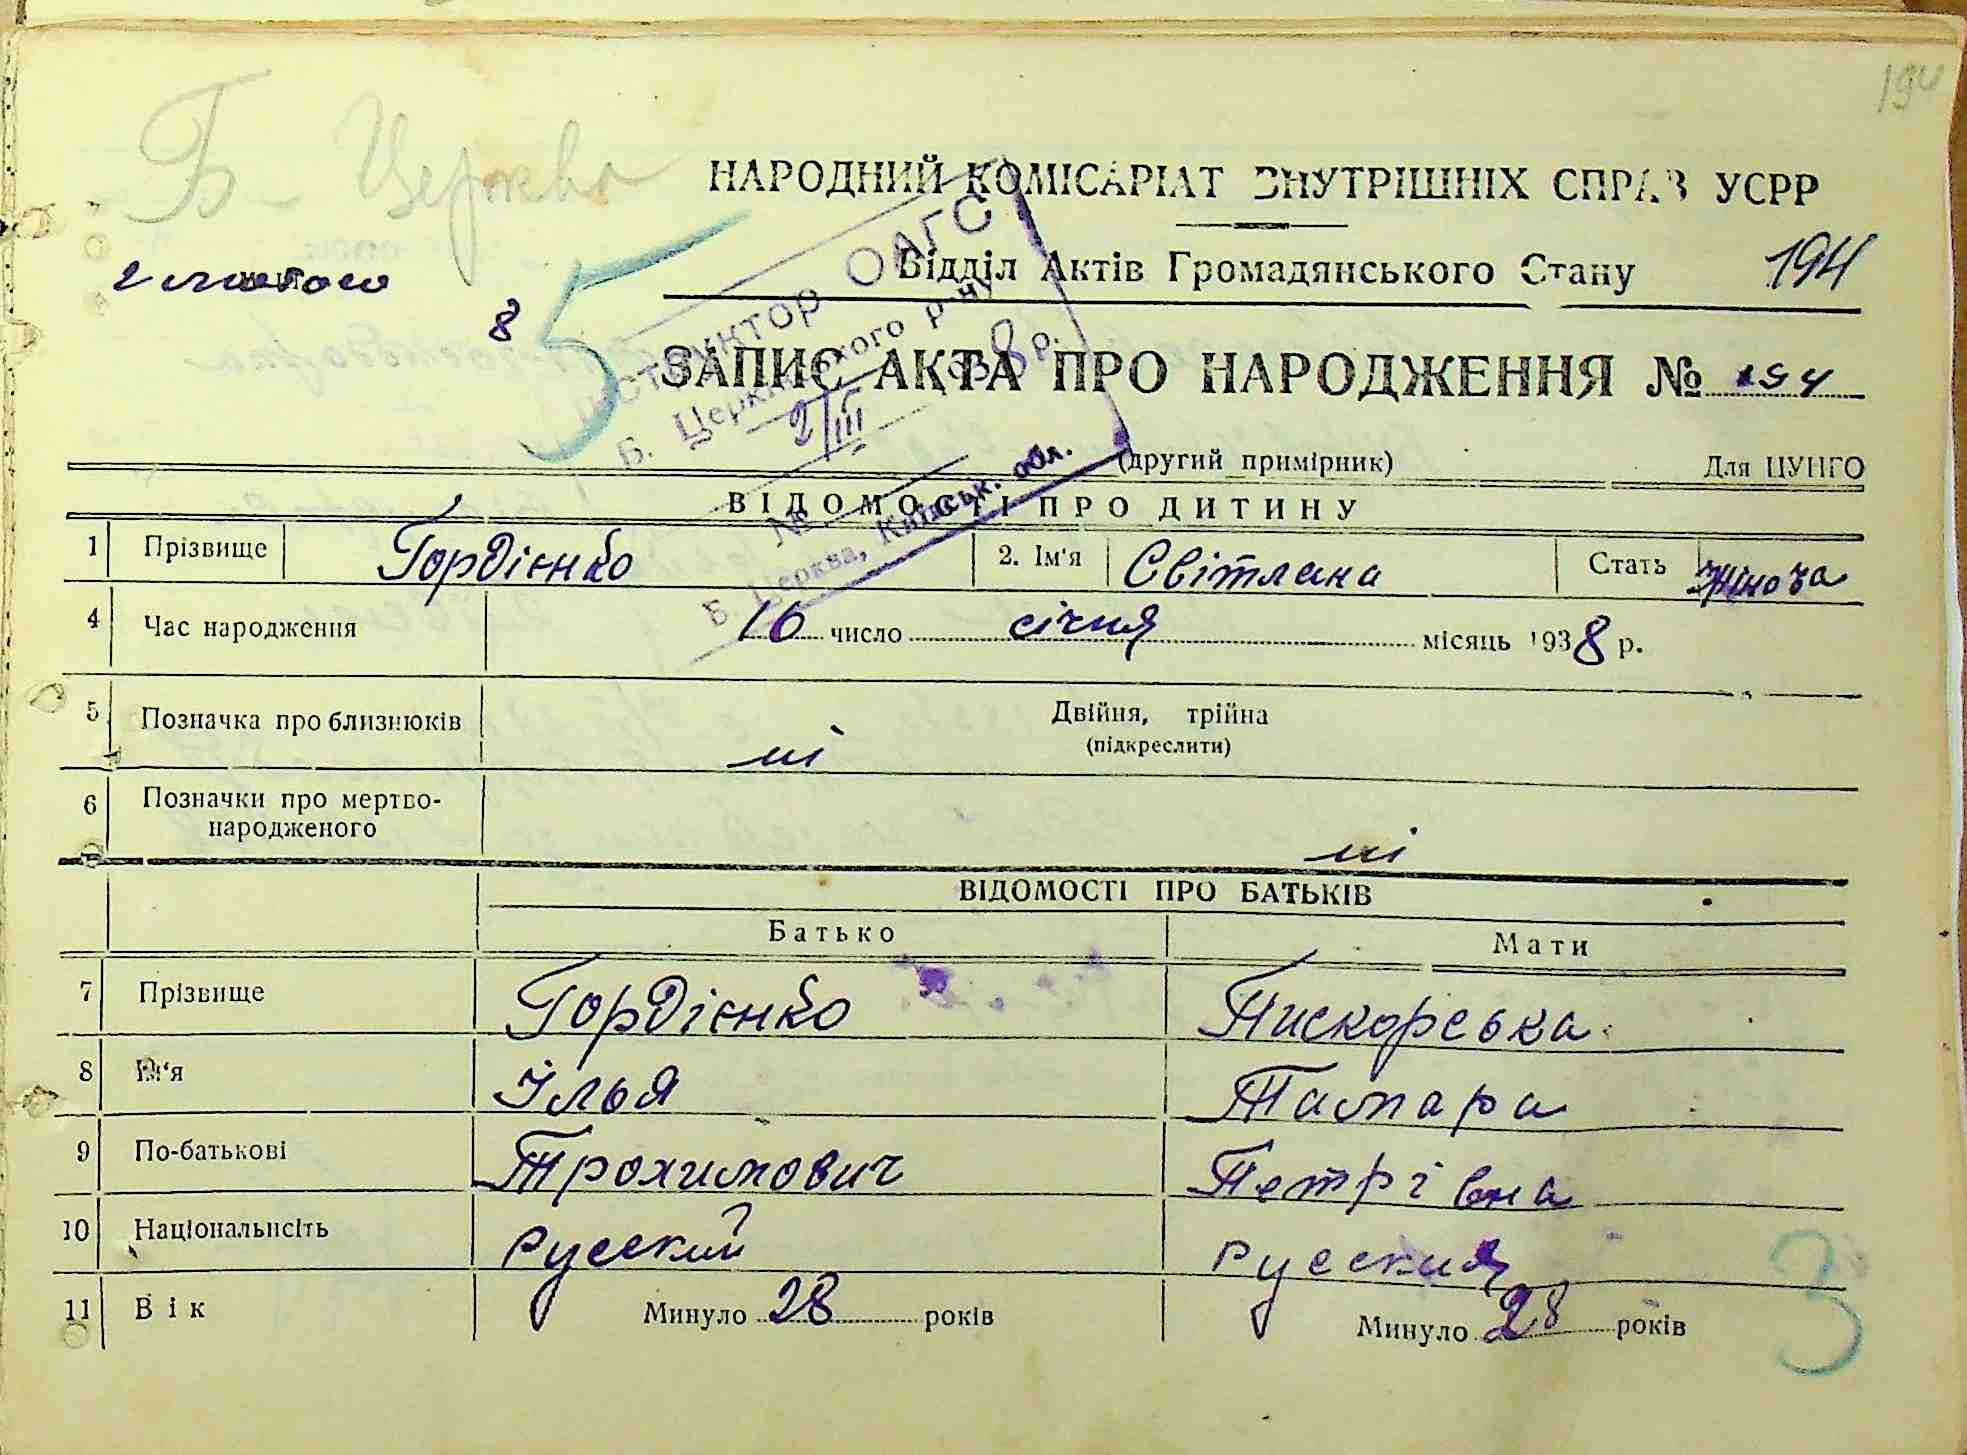 194
Б-Церква
НАРОДНИЙ КОМІСАРІАТ ВНУТРІШНІХ СПРАВ УСРР
Відділ Актів Громадянського Стану 194
2 лютого 8
5
ЗАПИС АКТА ПРО НАРОДЖЕННЯ № 194
(другий примірник) Для ЦУНГО
Інструктор ОАГС
Б. Церківського р-ну
2/III 1938 р.
№
Б. Церква, Київськ. обл.
ВІДОМОСТІ ПРО ДИТИНУ
1 Прізвище Гордієнко 2. Ім'я Світлана Стать жіноча
4 Час народження 16 число січня місяць 1938 р.
5 Позначка про близнюків ні Двійня, трійна
(підкреслити)
6 Позначки про мертво-
народженого ні
ВІДОМОСТІ ПРО БАТЬКІВ
Батько Мати
7 Прізвище Гордієнко Пискорська
8 Ім'я Ілья Тамара
9 По-батькові Трохимович Петрівна
10 Національність русский русския
11 Вік Минуло 28 років Минуло 28 років
3